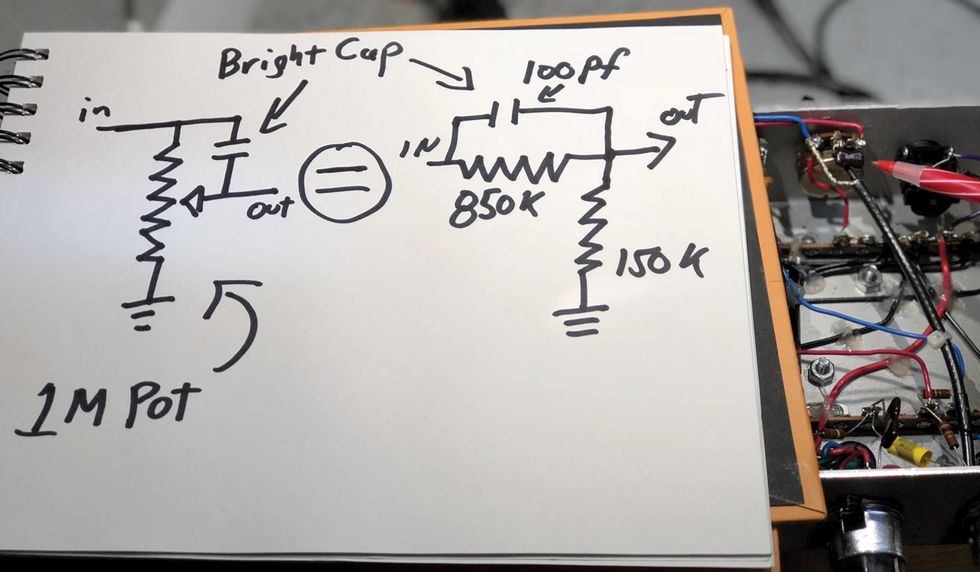 Bright Cap
in
out
1M Pot
100pf
IN
out
850K
150K